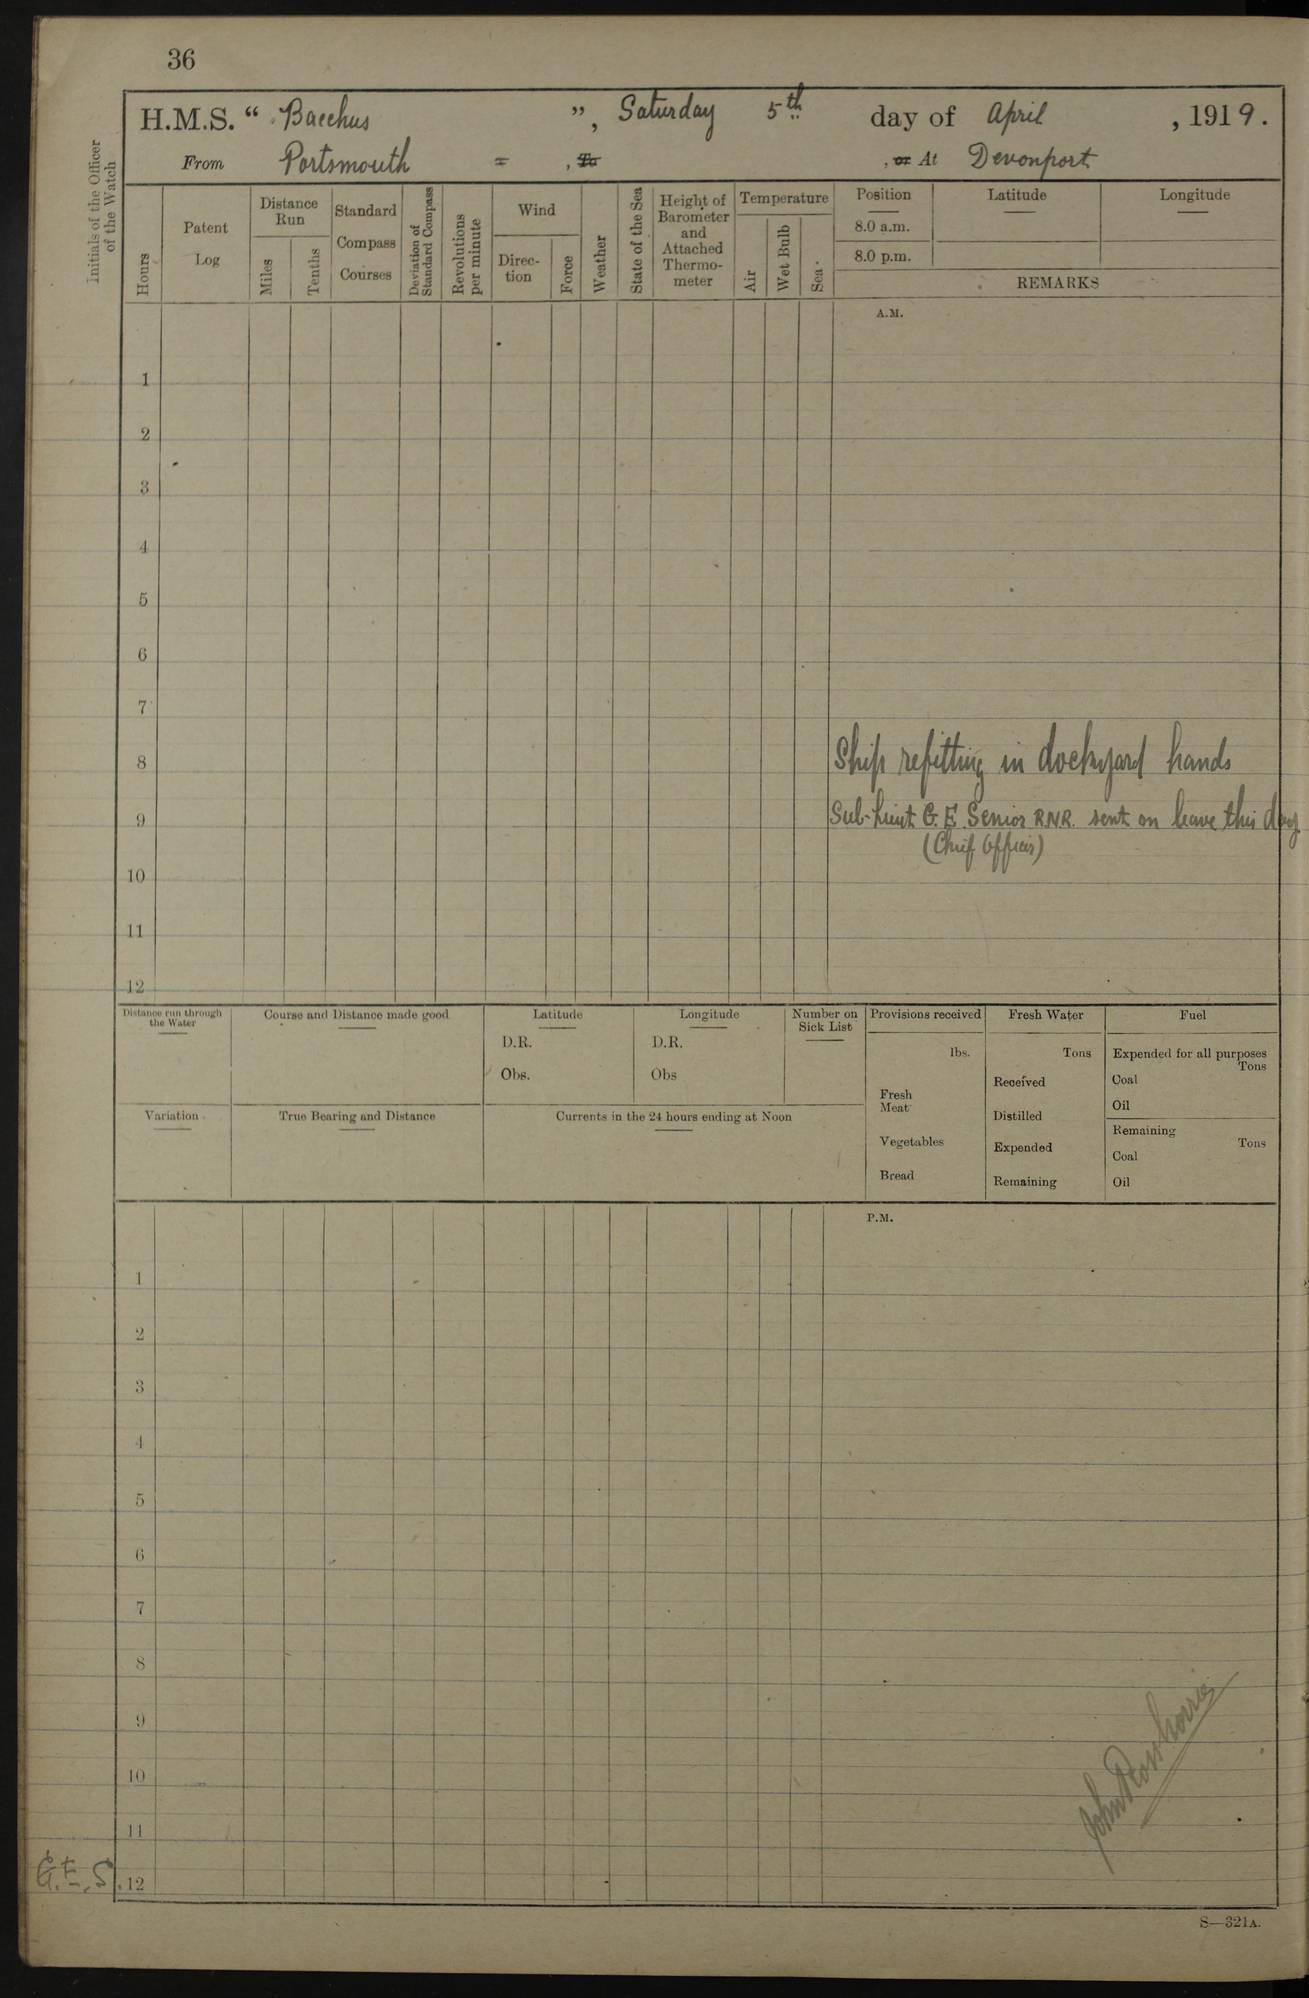 36
H.M.S. " Bacchus ", Saturday 5th day of April , 1919.
From Portsmouth = , To , or At Devonport
Initials of the Officer of the Watch
Hours
Patent Log
Distance Run
Miles
Tenths
Standard Compass Courses
Deviation of Standard Compass
Revolutions per minute
Wind
Direc-tion
Force
Weather
State of the Sea
Height of Barometer and Attached Thermo-meter
Temperature
Air
Wet Bulb
Sea
Position
Latitude
Longitude
8.0 a.m.
8.0 p.m.
REMARKS
A.M.
1
2
3
4
5
6
7
8 Ship refitting in dockyard hands
9 Sub-Lieut G. E. Senior RNR. sent on leave this day
(Chief Officer)
10
11
12
Distance run through the Water
Course and Distance made good
Latitude
Longitude
Number on Sick List
Provisions received
Fresh Water
Fuel
D.R.
D.R.
Obs.
Obs
lbs.
Fresh Meat
Vegetables
Bread
Tons
Received
Distilled
Expended
Remaining
Expended for all purposes
Tons
Coal
Oil
Remaining
Tons
Coal
Oil
Variation
True Bearing and Distance
Currents in the 24 hours ending at Noon
P.M.
1
2
3
4
5
6
7
8
9
10
11
G.E.S. 12
John Ross
S—321A.